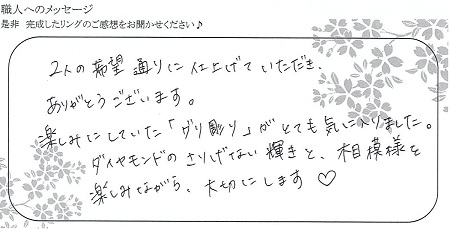 職人へのメッセージ
是非 完成したリングのご感想をお聞かせください♪
2人の希望通りに仕上げていただき、
ありがとうございます。
楽しみにしていた「グリ彫り」がとても気に入りました。
ダイヤモンドのさりげない輝きと、相模様を
楽しみながら、大切にします♡